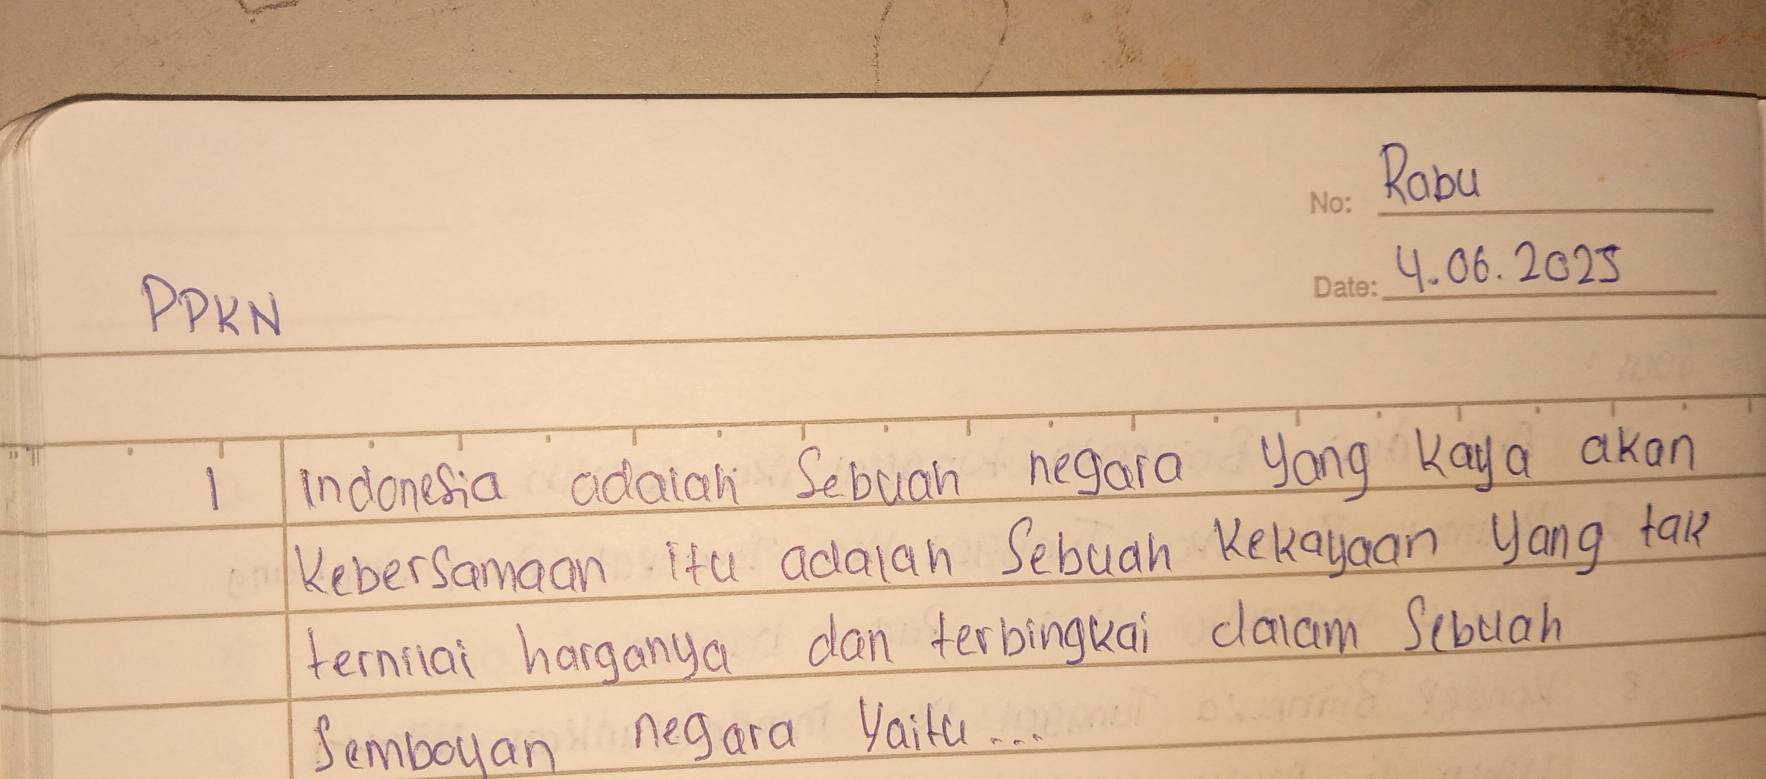 No: Rabu
Date: 4.06.2025
PPKN
1 Indonesia adalah Sebuah negara yang kaya akan
Kebersamaan itu adalah Sebuah kekayaan yang tak
ternilai harganya dan terbingkai dalam Sebuah
Semboyan negara yaitu...